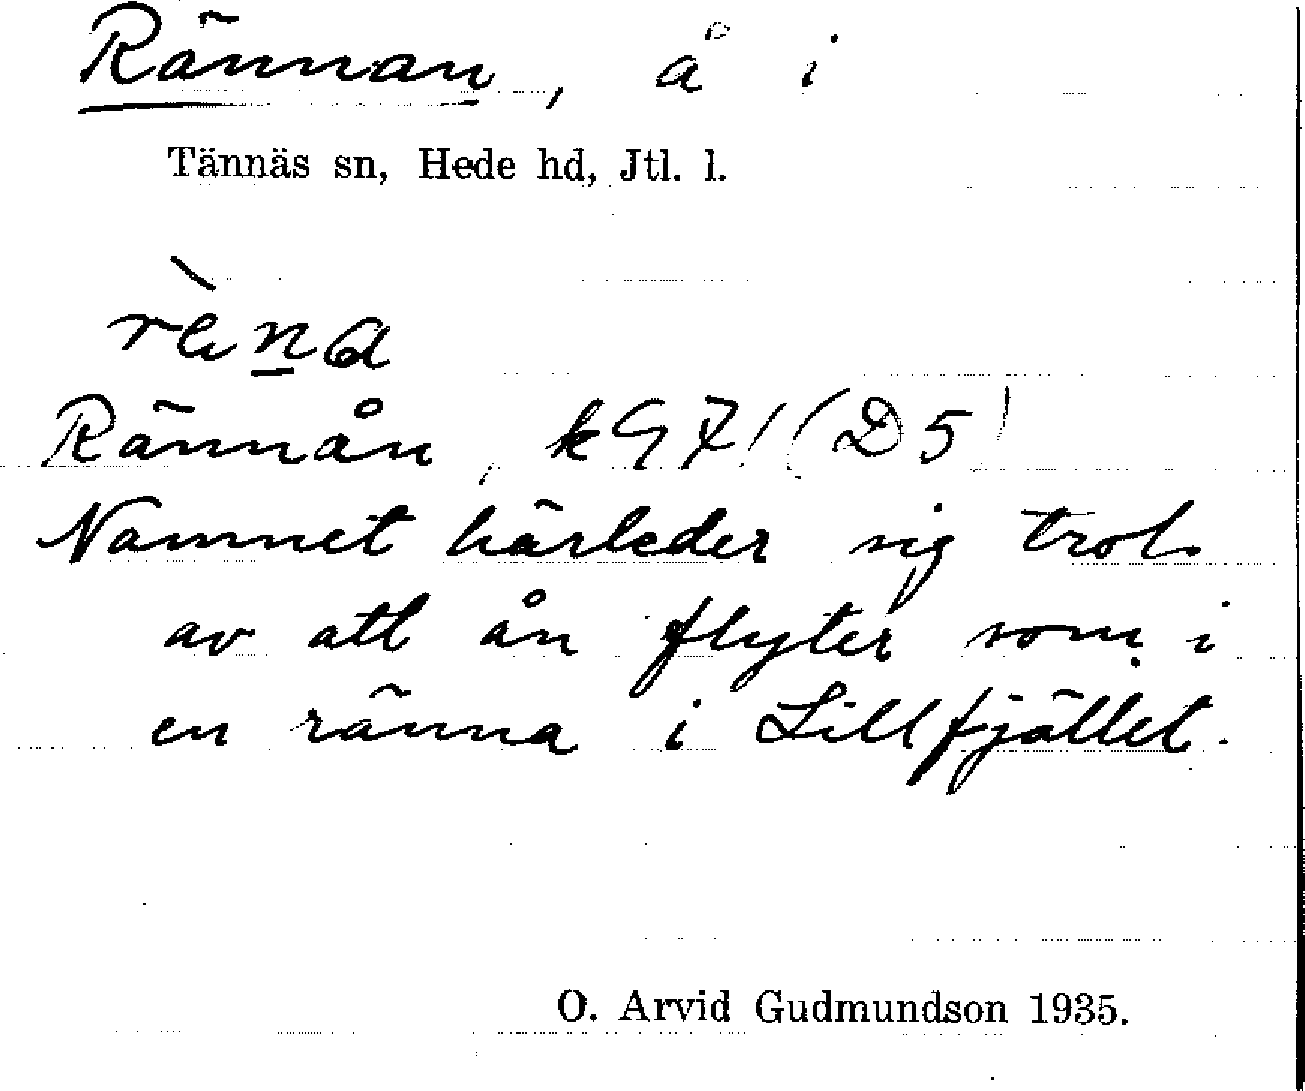 Rännan, å i
Tännäs sn, Hede hd, Jtl. l.
rèna
Rännån, k97! (D5)
Namnet härleder sig trol.
av att ån flyter som i
en ränna i Lillfjället.
O. Arvid Gudmundson 1935.